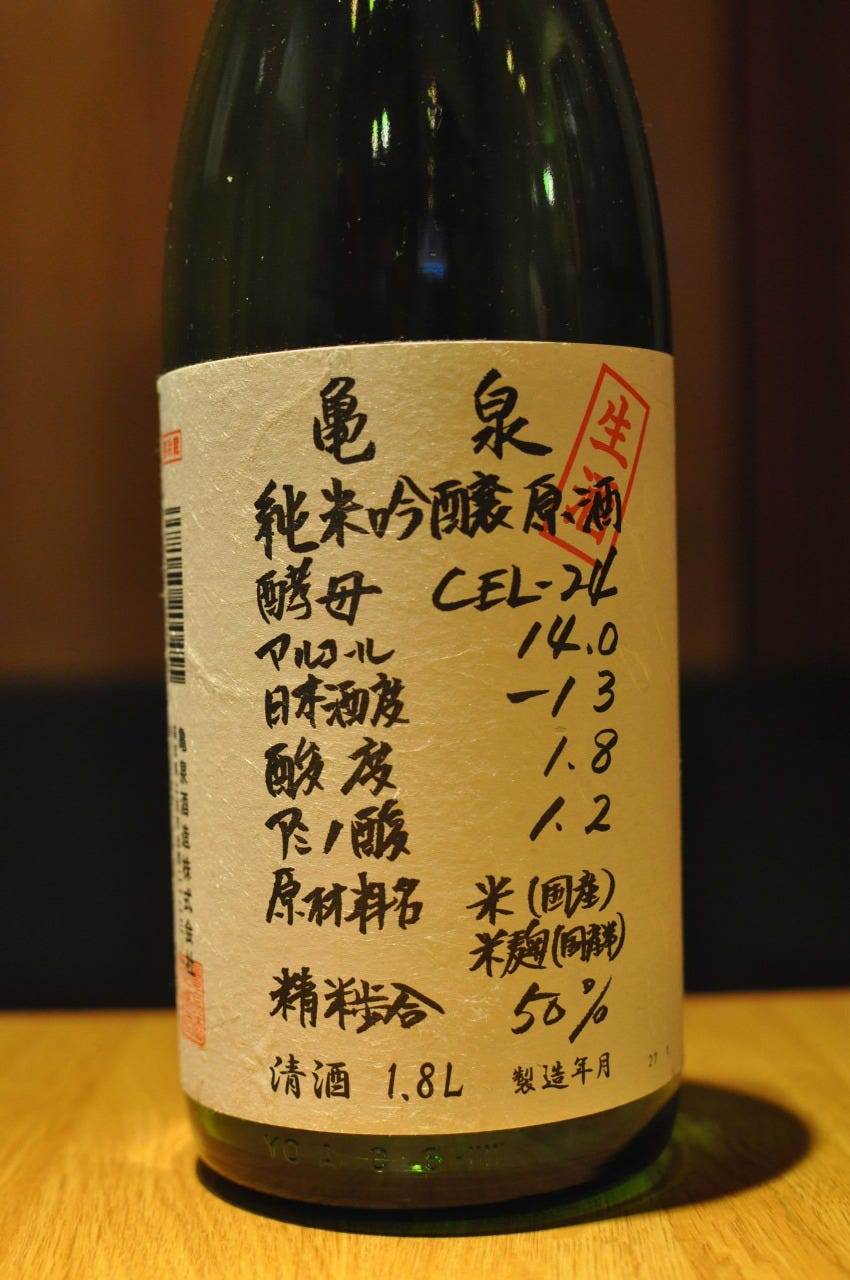 亀泉
生酒
純米吟醸原酒
酵母 CEL-24
アルコール 14.0
日本酒度 -13
酸度 1.8
アミノ酸 1.2
原材料名 米(国産)
米麹(国産米)
精米歩合 50%
清酒 1.8L 製造年月 27
亀泉酒造株式会社